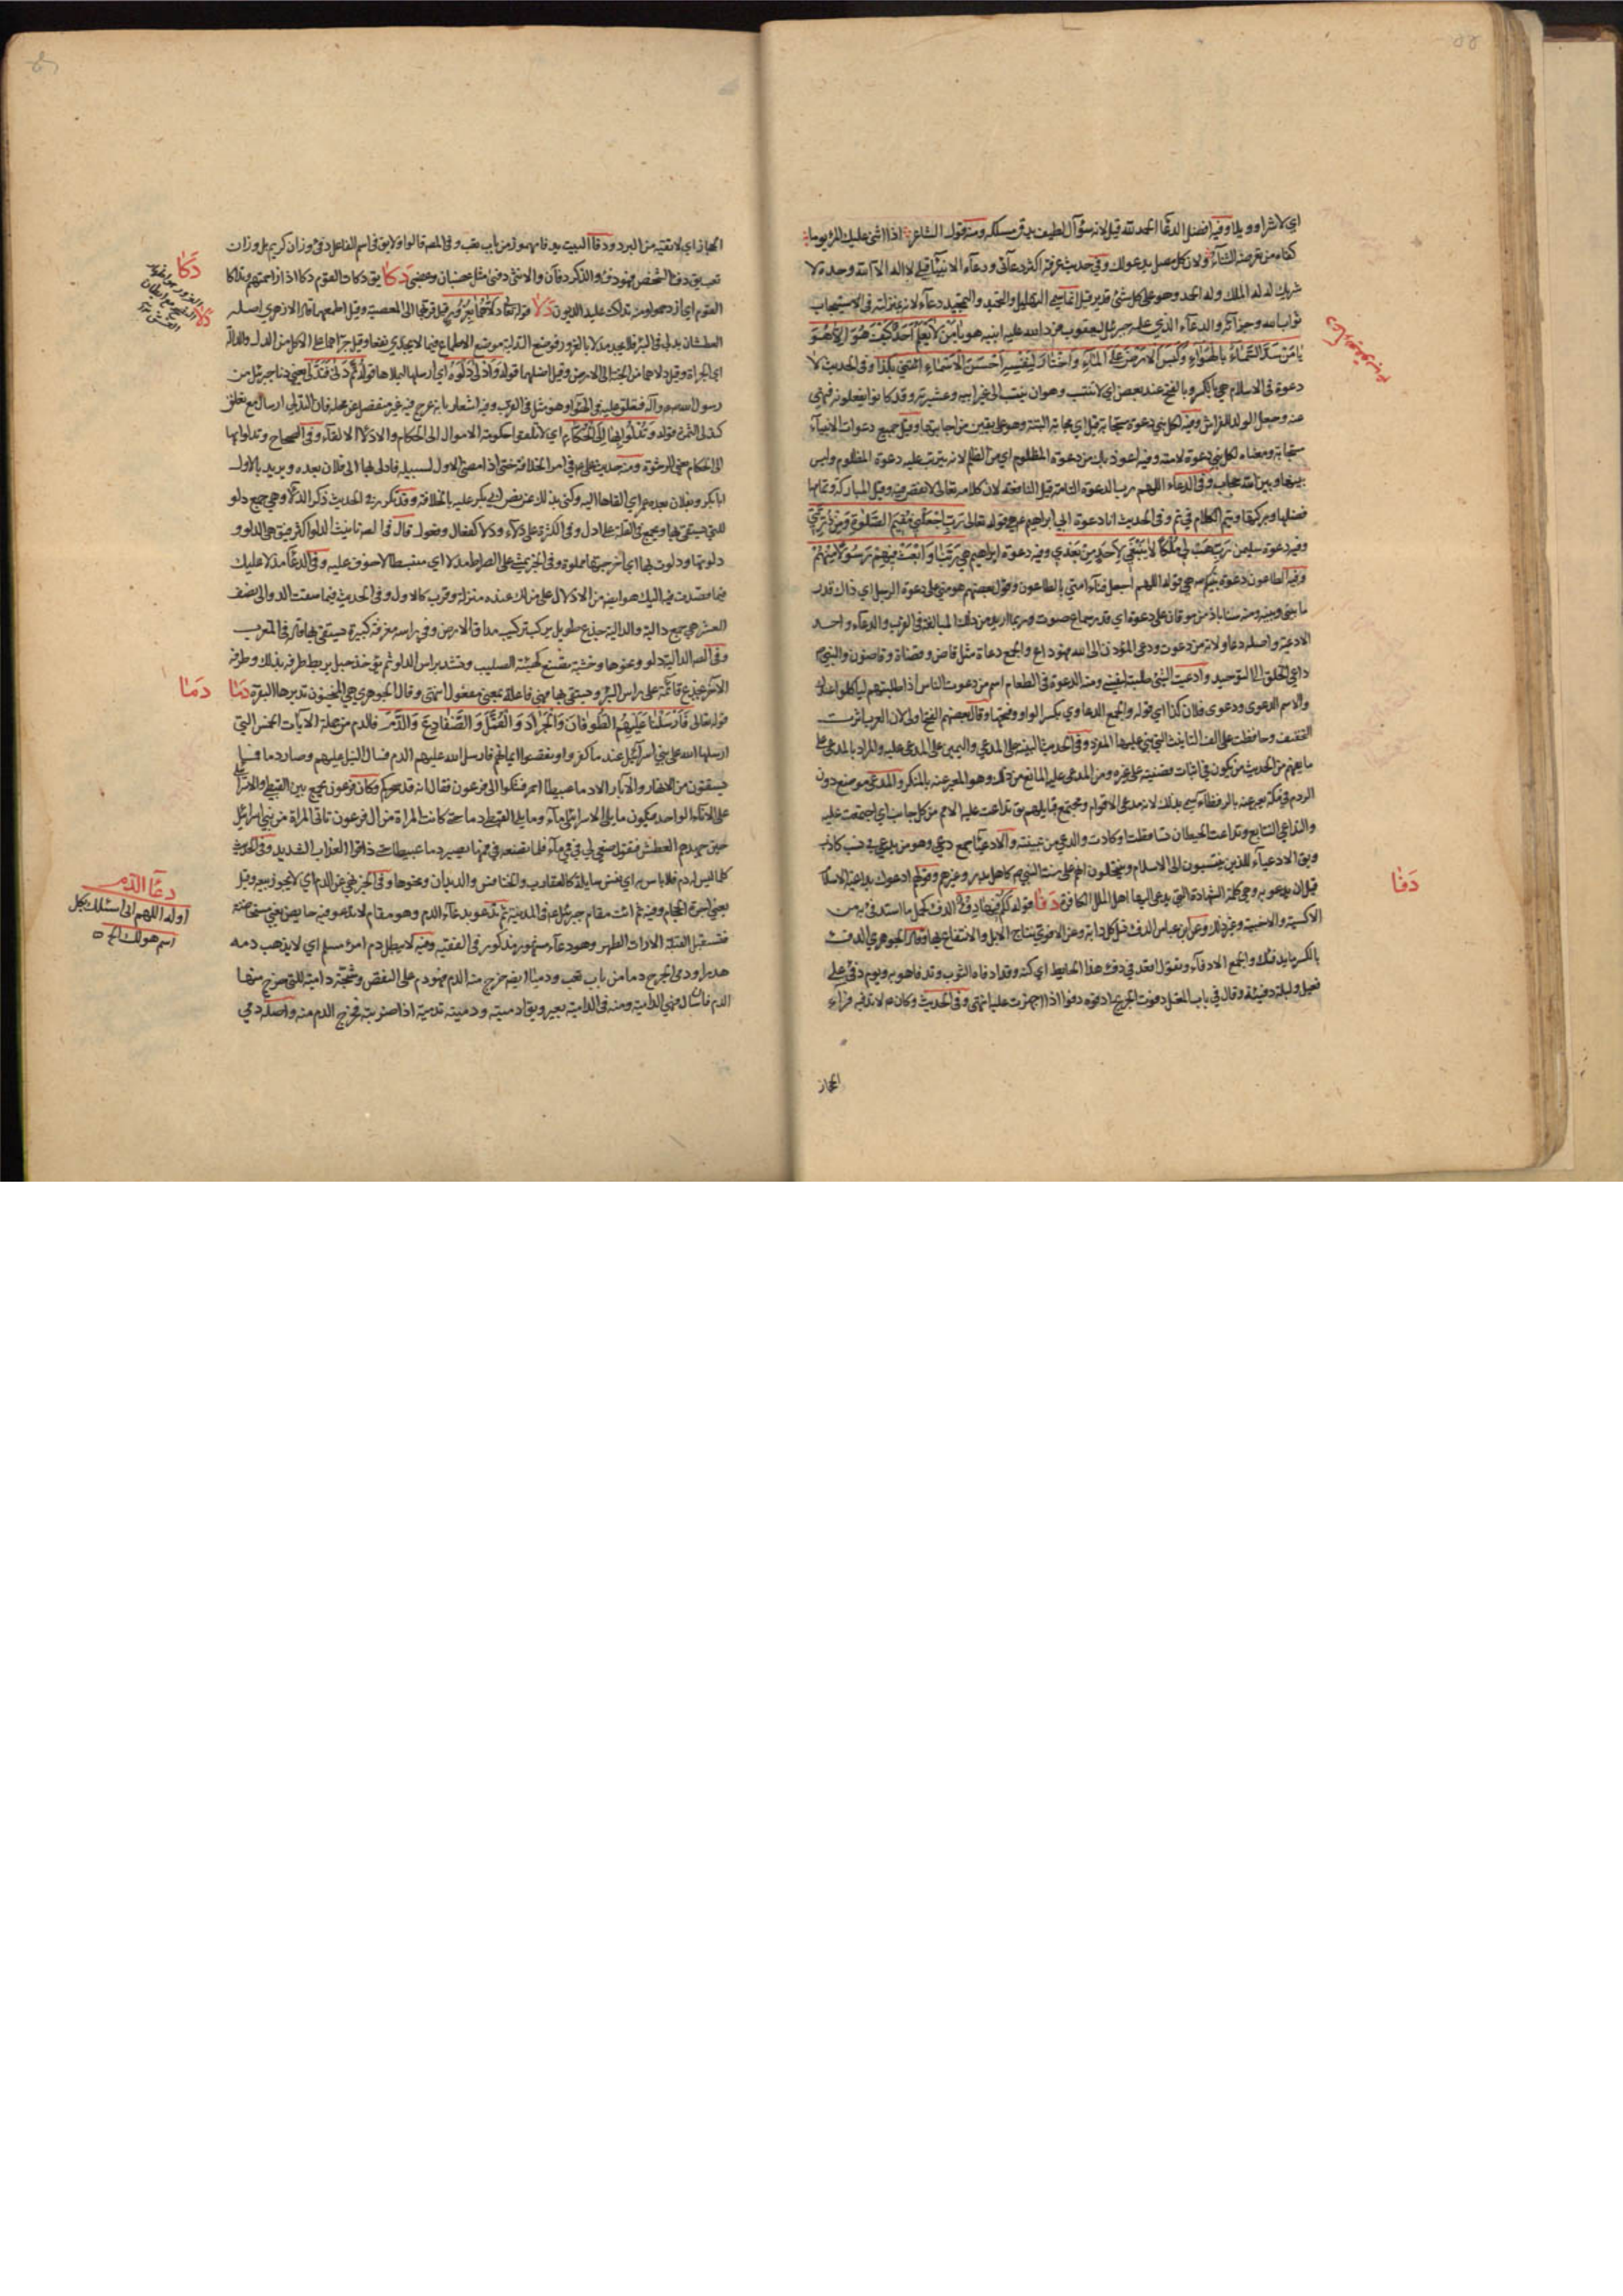 اي لا شرا وويلا وفيه افضل الدعآء الحمد لله قيل لانه سؤال لطيف يدق مسلكه ومنه قول الشاعر اذا اثنى عليك المرء يوما
كفاه من تعرضه الثناء ولان كل مصل يدعو لك وفي حديث عرفة اكثر دعائي ودعاء الانبياء قبلي لا اله الا الله وحده لا
شريك له له الملك وله الحمد وهو على كل شئ قدير قيل انما سمي التهليل والتحميد والتمجيد دعاء لانه بمنزلته في الاستيجاب
ثواب الله وجزائه والدعاء الذي علمه جبرئيل ليعقوب فرد الله عليه ابنيه هو يا من لا يعلم احد كيف هو الا هو
يا من سد السماء بالهواء وكبس الارض على الماء واختار لنفسه احسن الاسماء ائتني بكذا وفي الحديث لا
دعوة في الاسلام هي بالكسر وبالفتح عند بعض اي لا تنتسب وهو ان ينتسب الى غير ابيه وعشيرته وقد كانوا يفعلونه فنهى
عنه وجعل الولد للفراش وفيه لكل نبي دعوة مستجابة قيل اي مجابة البتة وهو على يقين من اجابتها وقيل جميع دعوات الانبياء
مستجابة ومعناه لكل نبي دعوة لامته وفيه اعوذ بك من دعوة المظلوم اي من الظلم لانه يترتب عليه دعوة المظلوم وليس
بينها وبين الله حجاب وفي الدعاء اللهم رب الدعوة التامة قيل النافعة لان كلامه تعالى لا نقص فيه وقيل المباركة وتمامها
فضلها وبركتها ويتم الكلام في تم وفي الحديث انا دعوة ابي ابراهيم هي قوله تعالى رب اجعلني مقيم الصلوة ومن ذريتي
وفيه دعوة سليمن رب هب لي ملكا لا ينبغي لاحد من بعدي وفيه دعوة ابراهيم هي ربنا وابعث فيهم رسولا منهم
وفيه الطاعون دعوة نبيكم هي قوله اللهم اجعل فناء امتي بالطاعون وقول بعضهم هو مني على دعوة الرجل اي ذاك قدر
ما بيني وبينه ومنه سناباذ من موقان على دعوة اي قدر سماع صوت وربما اريد من ذلك المبالغة في القرب والدعاء واحد
الادعية واصله دعاو لانه من دعوت ودعى المؤذن الى الله فهو داع والجمع دعاة مثل قاض وقضاة وقاضون والنبي
داعي الخلق الى التوحيد وادعيت الشئ طلبته لنفسي ومنه الدعوة في الطعام اسم من دعوت الناس اذا طلبتهم لياكلوا عندك
والاسم الدعوى ودعوى فلان كذا اي قوله والجمع الدعاوي بكسر الواو وفتحها وقال بعضهم الفتح اولى لان العرب اثرت
التخفيف وحافظت على الف التانيث التي بني عليها المفرد وفي الحديث البينة على المدعي واليمين على المدعى عليه والمراد بالمدعي على
ما يفهم من الحديث من يكون في اثبات قضية على غيره ومن المدعى عليه المانع من ذلك وهو المعبر عنه بالمنكر والمدعى موضع دون
والتداعي التتابع وتداعت الحيطان تساقطت او كادت والدعي من تبنيته والادعياء جمع دعي وهو من يدعي في نسب كاذب
قيل ان يدعو به وهي كلمة الشهادة التي يدعى اليها اهل الملل الكافرة دفا قوله لكم فيها دفء الدفء كحمل ما استدفئ به من
الاكسية والاخبية وغير ذلك وعن ابن عباس الدفء نسل كل دابة وعن الاموي نتاج الابل والانتفاع بها وقال الجوهري الدفء
بالكسر ما يدفئك والجمع الادفاء وتقول اقعد في دفء هذا الحائط اي كنه وقد ادفاه الثوب وتدفا هو به ويوم دفئ على
فعيل وليلة دفيئة وقال في باب المعتل دفوت الجريح ادفوه دفوا اذا اجهزت عليه انتهى وفي الحديث وكان لا تدفيه فراء
الحجاز
دفا
الحجاز اي لا تقيه من البرد ودفا البيت يدفا مهموز من باب تعب وفي المص قالوا ولا يق في اسم الفاعل دفئ وزان كريم بل وزان
تعب يق دفئ الشخص فهو دفئ والذكر دفآن والانثى دفئى مثل غضبان وغضبى دكا يق دكات القوم دكا اذا زاحمتهم وتداكا
القوم اي ازدحموا ومنه تداكت عليه الديون دلا قوله تعالى فدلاهما بغرور قيل قربهما الى المعصية وقيل اطمعهما قال الازهري اصله
العطشان يدلي في البئر فلا يجد ماء فيكون مدلا بالغرور فوضع التدلية موضع الاطماع فيما لا يجدي نفعا وقيل جراهما على الاكل من الدل والدالة
اي الجراة وقيل دلاهما من الجنة الى الارض وقيل اضلهما قوله وادلى دلوه اي ارسلها ليملاها قوله ثم دنى فتدلى يعني دنا جبرئيل من
رسول الله فتعلق عليه في الهواء وهو مثل في القرب وفيه اشعار بانه عرج به غير منفصل عن محله فان التدلي ارسال مع تعلق
كتدلي الثمرة قوله وتدلوا بها الى الحكام اي لا تلقوا حكومة الاموال الى الحكام والادلاء الالقاء وفي الصحاح وتدلوا بها
الى الحكام يعني الرشوة ومنه حديث علي ع في امر الخلافة حتى اذا مضى الاول لسبيله فادلى بها الى فلان بعده ويريد بالاول
ابا بكر وبفلان بعده عمر اي القاها اليه وكنى بذلك عن نص ابي بكر عليه بالخلافة وقد تكرر في الحديث ذكر الدلاء وهي جمع دلو
للتي يستقى بها ويجمع في القلة على ادل وفي الكثرة على دلاء ودلي كفعال وفعول قال في المص تانيث الدلو اكثر فيق هي الدلو و
دلوتها ودلوت بها اي اخرجتها مملوة وفي الخبر يمشي على الصراط مدلا اي منبسطا لا خوف عليه وفي الدعاء مدلا عليك
فيما قصدت فيه اليك هو ايضا من الادلال على من لك عنده منزلة وقرب كالاول وفي الحديث فيما سقت الدوالي نصف
العشر هي جمع دالية والدالية جذع طويل يركب تركيب مداق الارض وفي راسه مغرفة كبيرة يستقى بها قال في المغرب
وفي المص الدالية دلو ونحوها وخشبة تصنع كهيئة الصليب وتشد براس الدلو ثم يؤخذ حبل يربط طرفه بذلك وطرفه
الآخر بجذع قائمة على راس البئر ويستقى بها فهي فاعلة بمعنى مفعولة انتهى وقال الجوهري هي المنجنون تديرها البقرة دما
قوله تعالى فارسلنا عليهم الطوفان والجراد والقمل والضفادع والدم فالدم من جملة الآيات الخمس التي
ارسلها الله على بني اسرائيل عند ما كفروا ونقضوا ايمانهم فارسل الله عليهم الدم فسال النيل عليهم وصار دما فما
يسقون من الانهار والآبار الا دما عبيطا احمر فشكوا الى فرعون فقال انه قد سحركم وكان فرعون يجمع بين القبطي والاسرائيلي
على الاناء الواحد فيكون ما يلي الاسرائيلي ماء وما يلي القبطي دما حتى كانت المراة من ال فرعون تاتي المراة من بني اسرائيل
حين جهدهم العطش فتقول صبي لي في فمي ماء فلما تصبه في فمها يصير دما عبيطا حتى ذاقوا العذاب الشديد وفي الحديث
كلما ليس له دم فلا باس به اي نفس سايلة كالعقارب والخنافس والديدان ونحوها وفي الخبر نهي عن الدم اي لا يجوز بيعه وقيل
يعني اجرة الحجام وفيه ثم ائت مقام جبرئيل ع في المدينة ثم تدعو بدعاء الدم وهو مقام لا تدعو فيه حايض
فتستقبل القبلة الا رات الطهر وهو دعاء مشهور مذكور في الفقيه وفيه لا يبطل دم امرئ مسلم اي لا يذهب دمه
هدرا ودمي الجرح دما من باب تعب ودميا ايضا خرج منه الدم فهو دم على النقص وشجة دامية للتي يخرج منها
الدم فان سال فهي الدامعة ومنه في الدامية بعير ويق ادميته ودميته تدمية اذا ضربته فخرج الدم منه واصله دمي
دكا
دلا
دما
دعاء الدم
اوله اللهم اني اسئلك بكل
اسم هو لك الخ